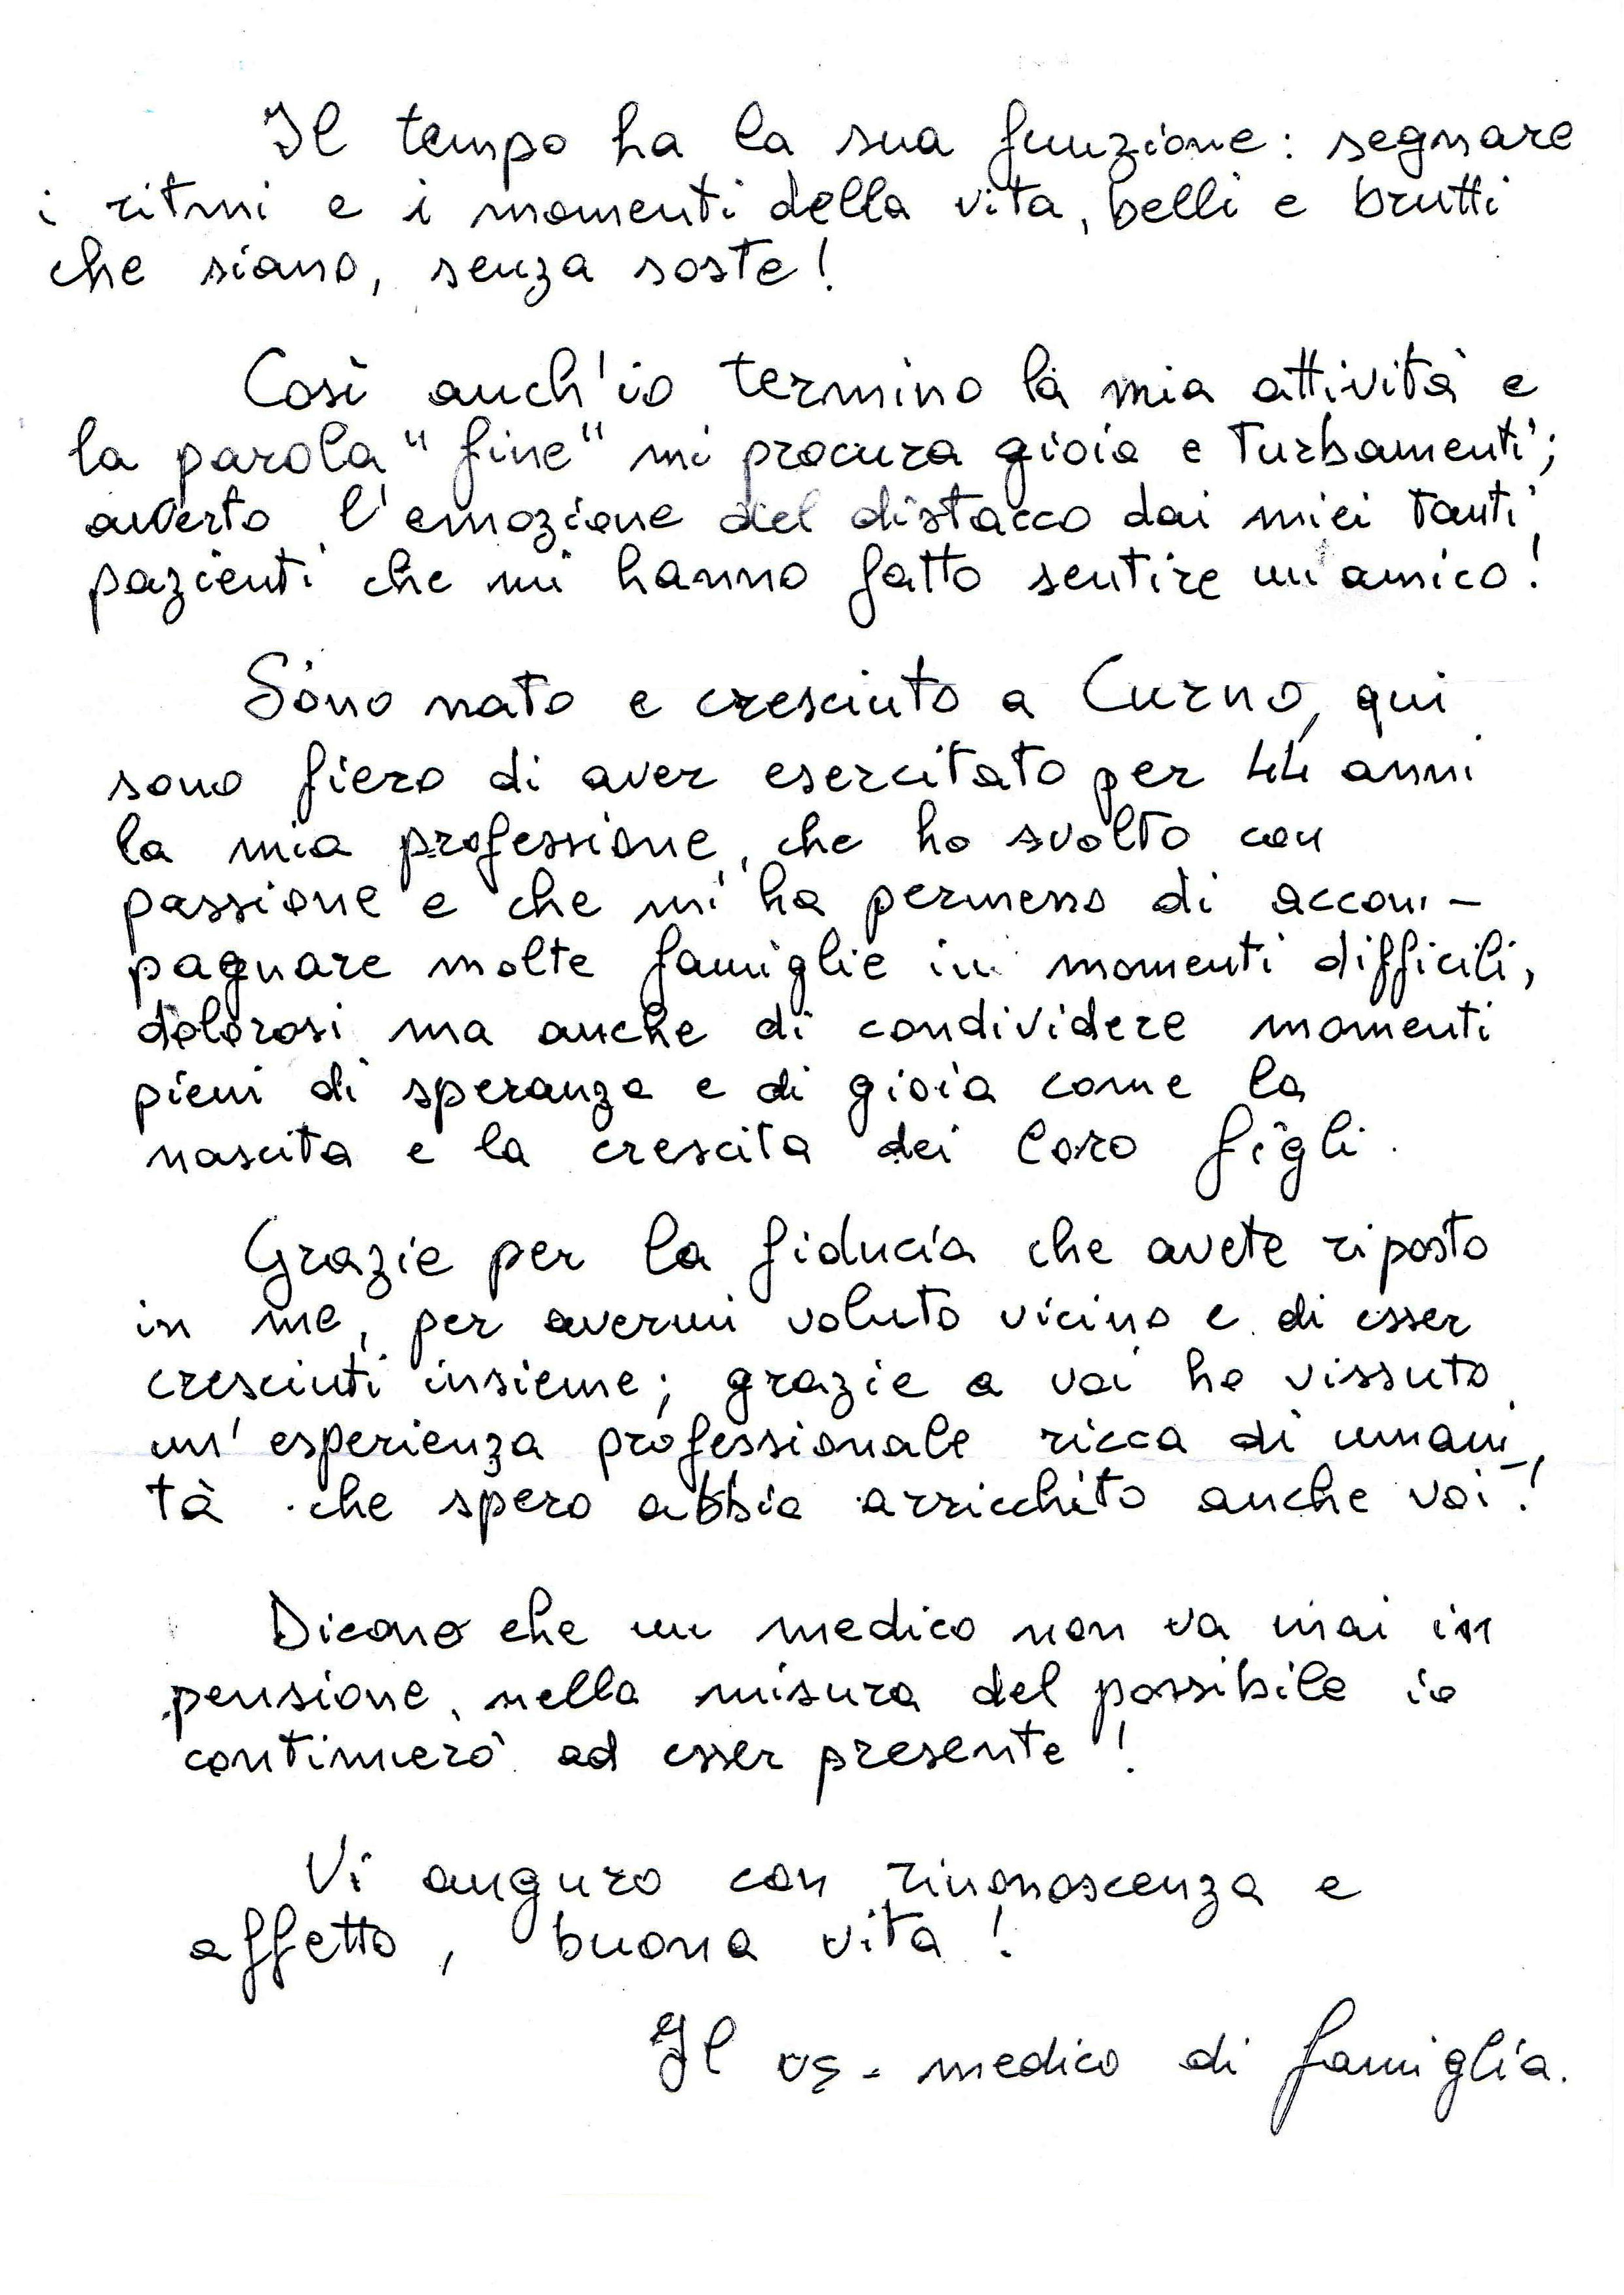 Il tempo ha la sua funzione: segnare
i ritmi e i momenti della vita, belli e brutti
che siano, senza soste!
Così anch'io termino la mia attività e
la parola "fine" mi procura gioia e turbamenti;
avverto l'emozione del distacco dai miei tanti
pazienti che mi hanno fatto sentire un amico!
Sono nato e cresciuto a Curno, qui
sono fiero di aver esercitato per 44 anni
la mia professione, che ho svolto con
passione e che mi ha permesso di accom-
pagnare molte famiglie in momenti difficili,
dolorosi ma anche di condividere momenti
pieni di speranza e di gioia come la
nascita e la crescita dei loro figli.
Grazie per la fiducia che avete riposto
in me, per avermi voluto vicino e di esser
cresciuti insieme; grazie a voi ho vissuto
un'esperienza professionale ricca di umani-
tà che spero abbia arricchito anche voi!
Dicono che un medico non va mai in
pensione, nella misura del possibile io
continuerò ad esser presente!
Vi auguro con riconoscenza e
affetto, buona vita!
Il vs. medico di famiglia.